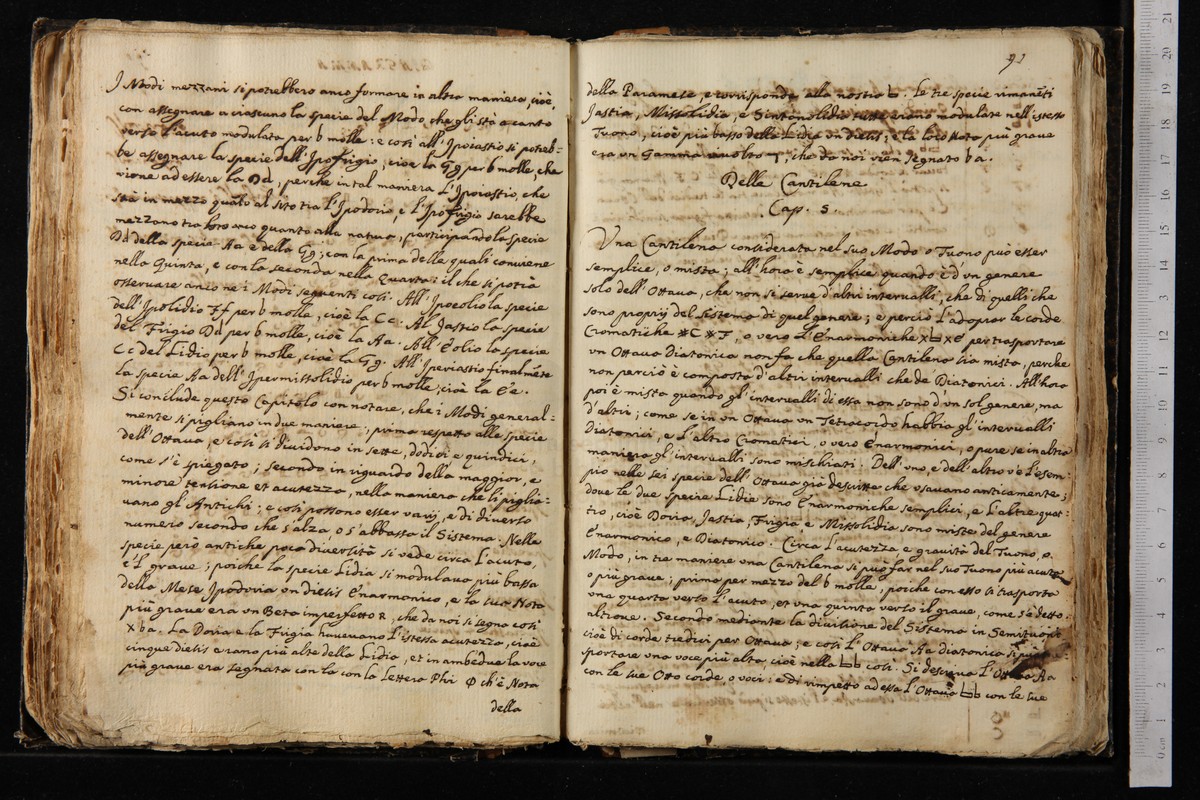 I Modi mezzani si potrebbero anco formare in altra maniera, cioè,
con assegnare a ciascuno la specie del Modo che gli stà a canto
verso l'acuto modulata per b molle: e così all'Ipoiastio si potreb=
be assegnare la specie dell'Ipofrigio, cioè la Gg per b molle, che
viene ad essere la Dd, perche in tal maniera l'Ipoiastio, che
stà in mezzo quato al sito tra l'Ipodorio, e l'Ipofrigio sarebbe
mezzano tra loro anco quanto alla natura, participando la specie
Dd della specie Aa e della Gg; con la prima delle quali conviene
nella Quinta, e con la seconda nella Quarta: il che si potria
osseruare anco ne i Modi seguenti così. All'Ipoeolio la specie
dell'Ipolidio Ff per b molle, cioè la Cc. Al Iastio la specie
del Frigio Dd per b molle, cioè la Aa. All'Eolio la specie
Cc del Lidio per b molle, cioè la Gg. All'Iperiastio finalmẽte
la specie Aa dell'Ipermissolidio per b molle, cioè la Ee.
Si conclude questo Capitolo con notare, che i Modi general=
mente si pigliano in due maniere; prima respetto alle specie
dell'Ottaua, e così si diuidono in sette, dodici e quindici,
come s'è spiegato; secondo in riguardo della maggior, e
minore tensione et acutezza, nella maniera che li piglia=
uano gl'Antichi; e così possono esser varij, e di diuerso
numero secondo che s'alza, o s'abbassa il Sistema. Nelle
specie però antiche poca diuersità si vede circa l'acuto,
e'l graue; poiche la specie Lidia si modulaua più bassa
della Mese Ipodoria un diesis Enarmonico, e la sua Nota
più graue era un Beta imperfetto R, che da noi si segna così
x b a. La Doria e la Frigia haueuano l'istessa acutezza, cioè
cinque diesis erano più alte della Lidia, et in ambedue la voce
più graue era segnata con la con la Lettera Phi Φ ch'è Nota
della
91
della Paramese, e corrisponde alla nostra ♮. Le tre specie rimanẽti
Iastia, Missolidia, e Sintonolidia tutte erano modulate nell'istesso
Tuono, cioè più basso della Lidia un diesis; e la loro Nota più graue
era un Gamma inuolto, che da noi vien segnato b a.
Delle Cantilene
Cap. 5.
Una Cantilena considerata nel suo Modo o Tuono può esser
semplice, o mista; all'hora è semplice quando è d'un genere
solo dell'Ottaua, che non si serue d'altri interualli, che di quelli che
sono proprij del sistema di quel genere; e perciò l'adoprar le corde
Cromatiche ※C ※F, o vero l'Enarmoniche x♮ xe per trasportare
un Ottaua Diatonica non fa che quella Cantilena sia mista, perche
non perciò è composta d'altri interualli che da Diatonici. All'hora
poi è mista quando gl'interualli di essa non sono d'un sol genere, ma
d'altri; come se in un Ottaua un Tetracordo habbia gl'interualli
Diatonici, e l'altro Cromatici, o vero Enarmonici, o pure se in altra
maniera gl'interualli sono mischiati. Dell'uno, e dell'altro v'è l'esem=
pio nelle sei specie dell'Ottaua già descritte che usauano anticamente;
doue le due specie Lidie sono Enarmoniche semplici, e l'altre quat=
tro, cioè Doria, Iastia, Frigia, e Missolidia sono miste del genere
Enarmonico, e Diatonico. Circa l'acutezza e grauità del Tuono, o
Modo, in tre maniere una Cantilena si può far nel suo Tuono più acuta
o più graue; primo per mezzo del b molle, poiche con esso si trasporta
una quarta verso l'acuto, et una quinta verso il graue, come s'è detto
altroue. Secondo mediante la diuisione del Sistema in Semituoni
cioè di corde tredici per Ottaua; e così l'Ottaua Aa Diatonica si può
sportare una voce più alta, cioè nella ♮♮ così. Si descriua l'Ottaua Aa
con le sue Otto corde, o voci: e di rimpetto ad essa l'Ottaua ♮♮ con le sue